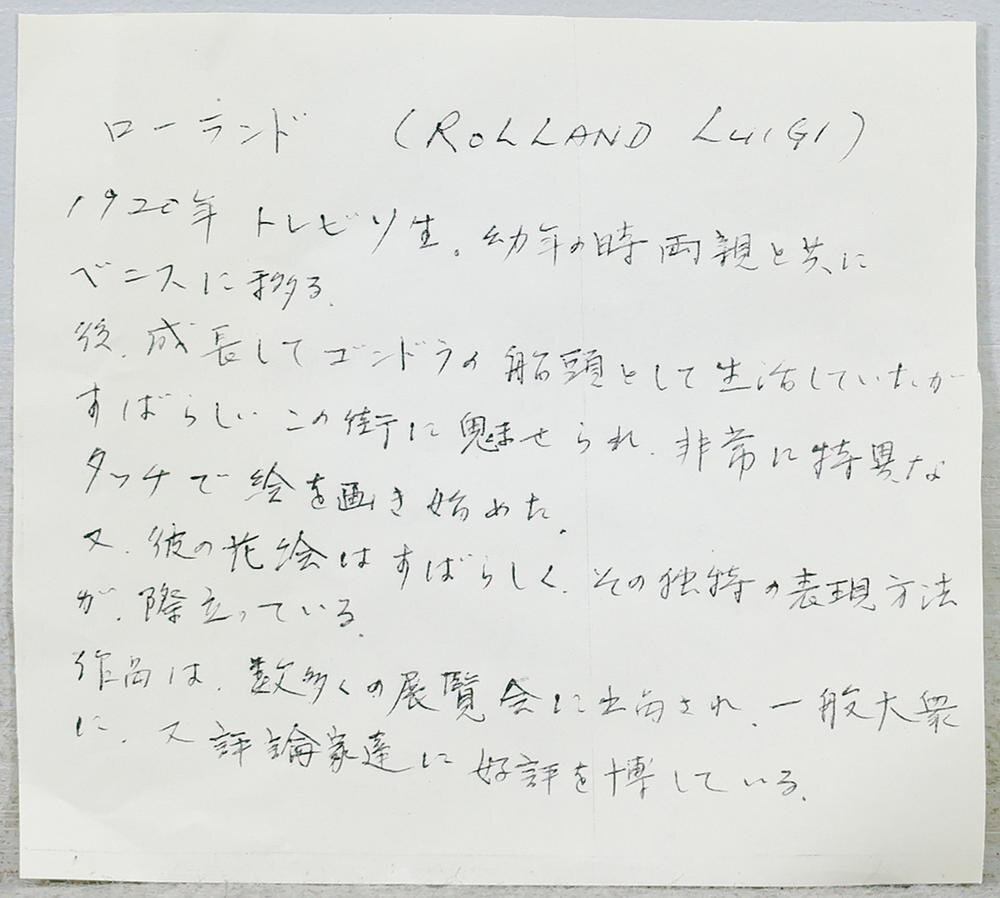 ローランド (ROLLAND LUIGI)
1920年 トレビソ生。幼年の時両親と共に
ベニスに移る.
後.成長してゴンドラの船頭として生活していたが
すばらしいこの街に魅せられ.非常に特異な
タッチで絵を画き始めた.
又.彼の花絵はすばらしく.その独特の表現方法
が.際立っている.
作品は.数多くの展覧会に出品され.一般大衆
に.又評論家達に好評を博している.